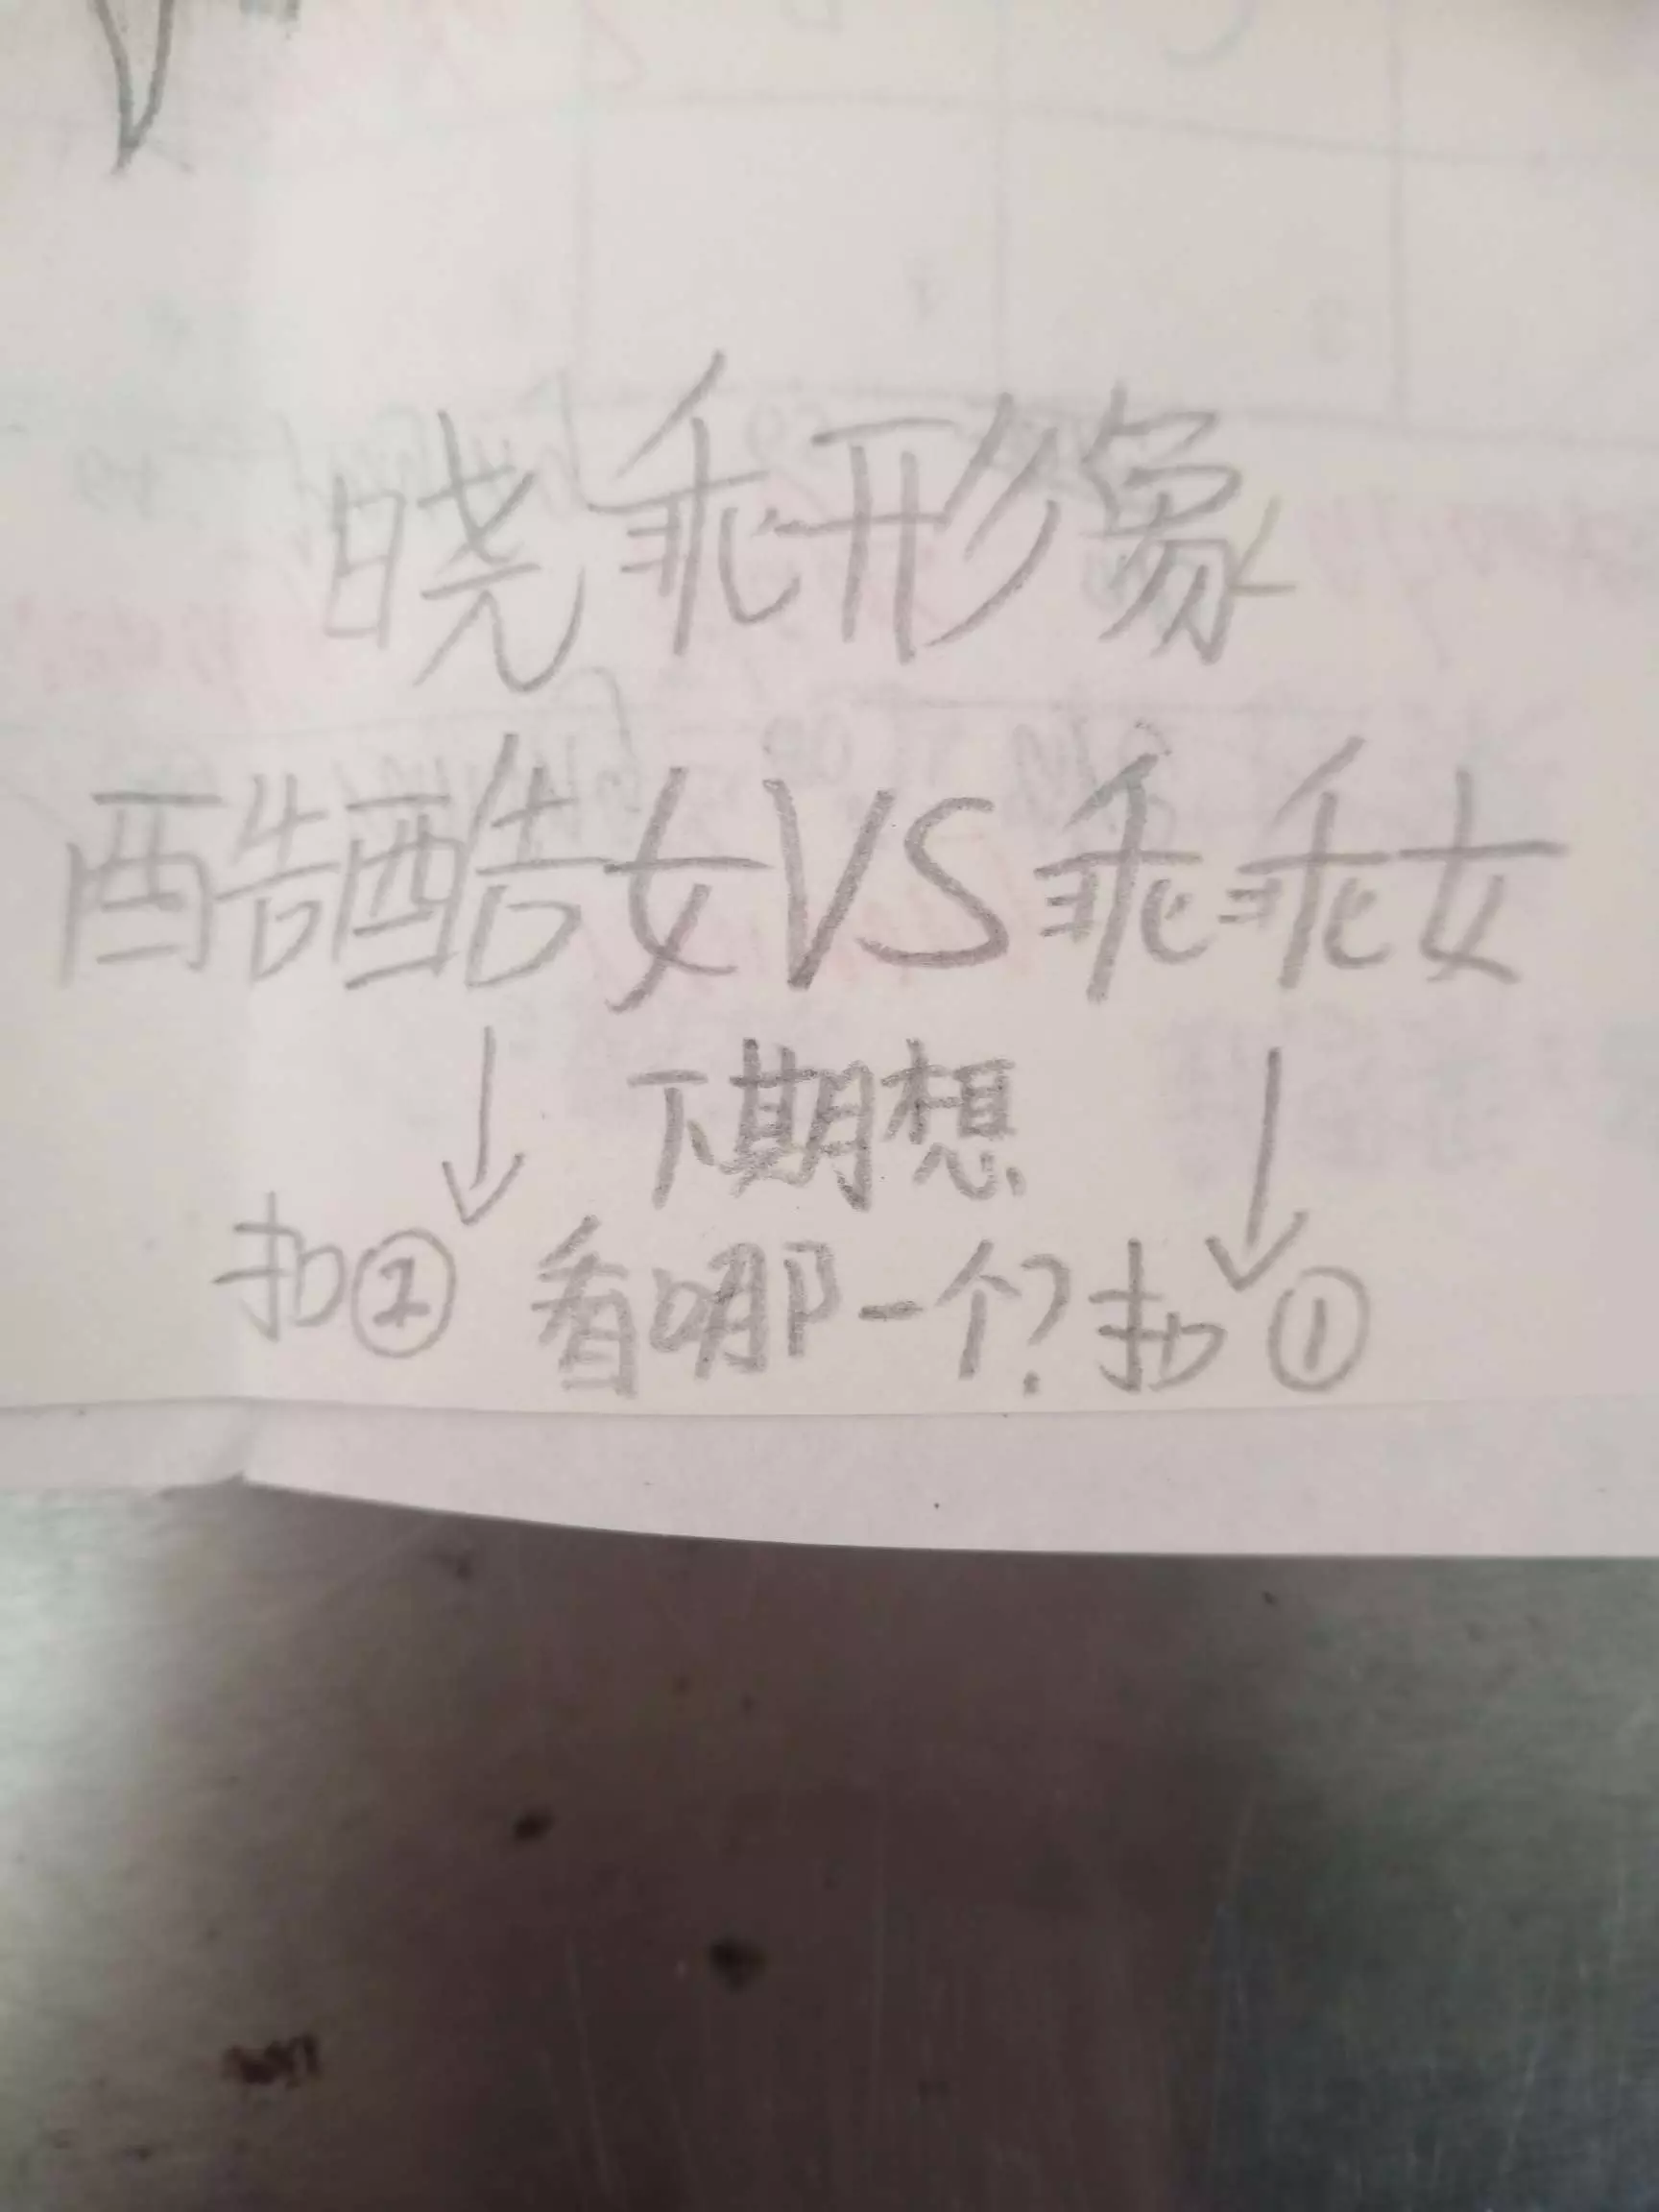 晓乖形象
酷酷女VS乖乖女
下期想
扣② 看哪一个？扣①